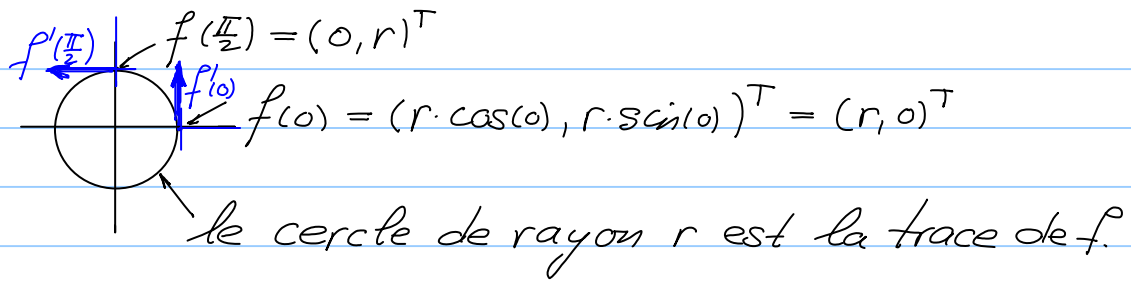 f'(π/2) f(π/2) = (0, r)ᵀ
f'(0) f(0) = (r·cos(0), r·sin(0))ᵀ = (r, 0)ᵀ
le cercle de rayon r est la trace de f.